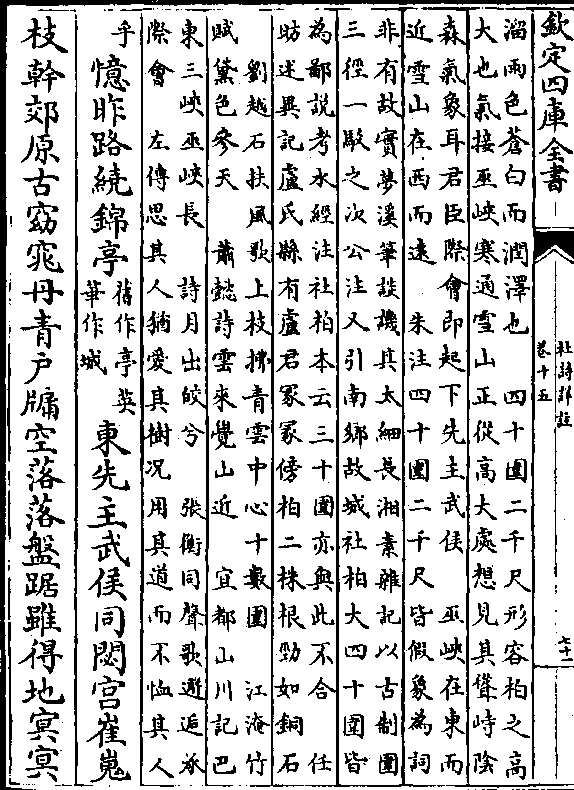 欽定四庫全書
杜詩詳註
卷十五
溜雨色蒼白而潤澤也　四十圍二千尺形容柏之高
大也氣接巫峽寒通雪山正從高大處想見其聳峙陰
森氣象耳君臣際會即起下先主武侯　巫峽在東而
近雪山在西而遠　朱注四十圍二千尺皆假象為詞
非有故實夢溪筆談譏其太細長湘素雜記以古制圍
三徑一駁之次公注又引南鄉故城社柏大四十圍皆
為鄙說考水經注社柏本云三十圍亦與此不合　任
昉述異記盧氏縣有盧君冢冢傍柏二株根勁如銅石
劉越石扶風歌上枝拂青雲中心十數圍　江淹竹
賦黛色參天　蕭懿詩雲來覺山近　宜都山川記巴
東三峽巫峽長　詩月出皎兮　張衡同聲歌邂逅承
際會　左傳思其人猶愛其樹况用其道而不恤其人
乎　憶昨路繞錦亭舊作亭英華作城東先主武侯同閟宮崔嵬
枝幹郊原古窈窕丹青户牖空落落盤踞雖得地冥冥